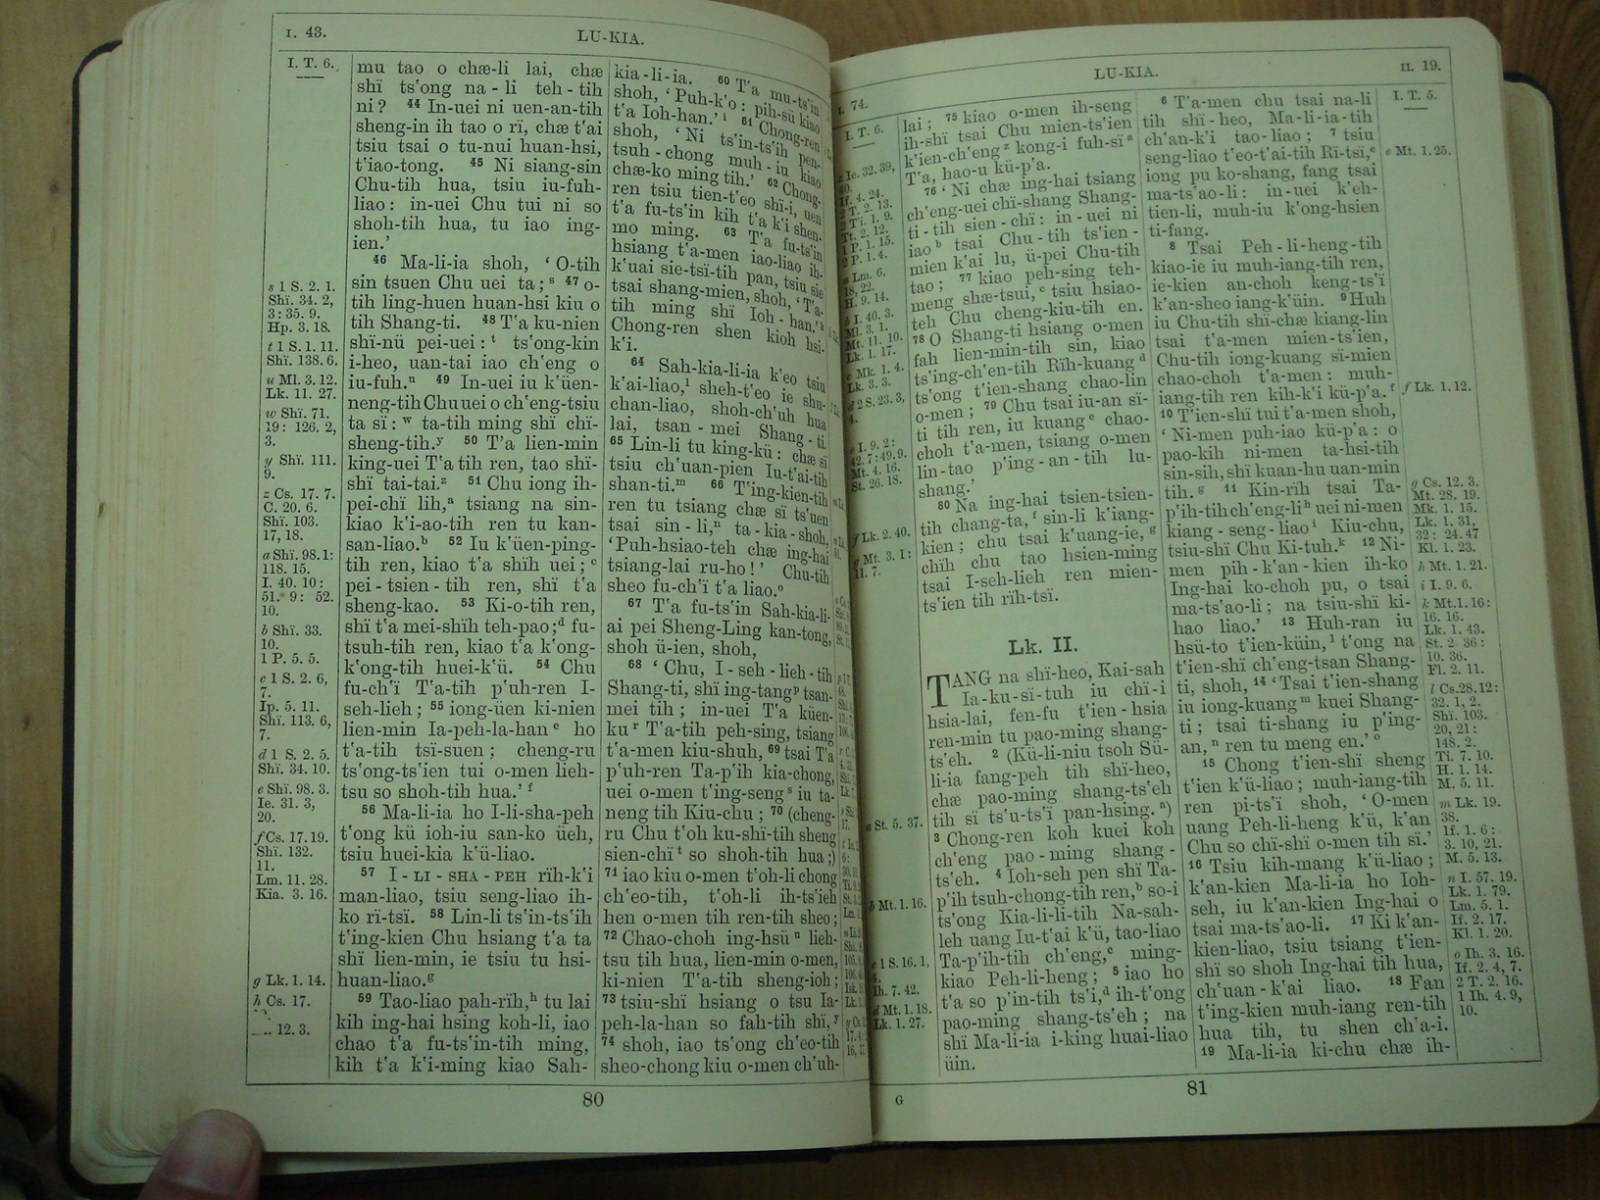 I. 43.
LU-KIA.
I. T. 6.
s 1 S. 2. 1.
Shï. 34. 2,
3 : 35. 9.
Hp. 3. 18.
t 1 S. 1. 11.
Shï. 138. 6.
u Ml. 3. 12.
Lk. 11. 27.
w Shï. 71.
19 : 126. 2,
3.
y Shï. 111.
9.
z Cs. 17. 7.
C. 20. 6.
Shï. 103.
17, 18.
a Shï. 98. 1 :
118. 15.
I. 40. 10 :
51. 9 : 52.
10.
b Shï. 33.
10.
1 P. 5. 5.
c 1 S. 2. 6,
7.
Ip. 5. 11.
Shï. 113. 6,
7.
d 1 S. 2. 5.
Shï. 34. 10.
e Shï. 98. 3.
Ie. 31. 3,
20.
f Cs. 17. 19.
Shï. 132.
11.
Lm. 11. 28.
Kia. 3. 16.
g Lk. 1. 14.
h Cs. 17.
12. 3.
mu tao o chæ-li lai, chæ
shï ts'ong na-li teh-tih
ni? 44 In-uei ni uen-an-tih
sheng-in ih tao o rï, chæ t'ai
tsiu tsai o tu-nui huan-hsi,
t'iao-tong. 45 Ni siang-sin
Chu-tih hua, tsiu iu-fuh-
liao : in-uei Chu tui ni so
shoh-tih hua, tu iao ing-
ien.'
46 Ma-li-ia shoh, 'O-tih
sin tsuen Chu uei ta; s 47 o-
tih ling-huen huan-hsi kiu o
tih Shang-ti. 48 T'a ku-nien
shï-nü pei-uei : t ts'ong-kin
i-heo, uan-tai iao ch'eng o
iu-fuh. u 49 In-uei iu k'üen-
neng-tih Chu uei o ch'eng-tsiu
ta sï : w ta-tih ming shï chï-
sheng-tih. y 50 T'a lien-min
king-uei T'a tih ren, tao shï-
shï tai-tai. z 51 Chu iong ih-
pei-chï lih, a tsiang na sin-
kiao k'i-ao-tih ren tu kan-
san-liao. b 52 Iu k'üen-ping-
tih ren, kiao t'a shïh uei ; c
pei-tsien-tih ren, shï t'a
sheng-kao. 53 Ki-o-tih ren,
shï t'a mei-shïh teh-pao ; d fu-
tsuh-tih ren, kiao t'a k'ong-
k'ong-tih huei-k'ü. 54 Chu
fu-ch'ï T'a-tih p'uh-ren I-
seh-lieh ; 55 iong-üen ki-nien
lien-min Ia-peh-la-han e ho
t'a-tih tsï-suen ; cheng-ru
ts'ong-ts'ien tui o-men lieh-
tsu so shoh-tih hua.' f
56 Ma-li-ia ho I-li-sha-peh
t'ong kü ioh-iu san-ko üeh,
tsiu huei-kia k'ü-liao.
57 I-LI-SHA-PEH rïh-k'i
man-liao, tsiu seng-liao ih-
ko rï-tsï. 58 Lin-li ts'in-ts'ih
t'ing-kien Chu hsiang t'a ta
shï lien-min, ie tsiu tu hsi-
huan-liao. g
59 Tao-liao pah-rïh, h tu lai
kih ing-hai hsing koh-li, iao
chao t'a fu-ts'in-tih ming,
kih t'a k'i-ming kiao Sah-
kia-li-ia. 60 T'a mu-ts'in
shoh, 'Puh-k'o : pih-sü kiao
t'a Ioh-han.' i 61 Chong-ren
shoh, 'Ni ts'in-ts'ih pen-
tsuh-chong muh-iu kiao
chæ-ko ming tih.' 62 Chong-
ren tsiu tien-t'eo shï-i, uen
t'a fu-ts'in kih t'a k'i shen-
mo ming. 63 T'a fu-ts'in
hsiang t'a-men iao-liao ih-
k'uai sie-tsï-tih pan, tsiu sie
tsai shang-mien, shoh, 'T'a-
tih ming shï Ioh-han.' k
Chong-ren shen kioh hsi-
k'i.
64 Sah-kia-li-ia k'eo tsiu
k'ai-liao, l sheh-t'eo ie shu-
chan-liao, shoh-ch'uh hua
lai, tsan-mei Shang-ti.
65 Lin-li tu king-kü : chæ sï
tsiu ch'uan-pien Iu-t'ai-tih
shan-ti. m 66 T'ing-kien-tih
ren tu tsiang chæ sï ts'uen
tsai sin-li, n ta-kia-shoh,
'Puh-hsiao-teh chæ ing-hai
tsiang-lai ru-ho!' Chu-tih
sheo fu-ch'ï t'a liao. o
67 T'a fu-ts'in Sah-kia-li-
ai pei Sheng-Ling kan-tong,
shoh ü-ien, shoh,
68 'Chu, I-seh-lieh-tih
Shang-ti, shï ing-tang p tsan-
mei tih ; in-uei T'a küen-
ku r T'a-tih peh-sing, tsiang
t'a-men kiu-shuh, 69 tsai T'a
p'uh-ren Ta-p'ih kia-chong,
uei o-men t'ing-seng s iu ta-
neng tih Kiu-chu ; 70 (cheng-
ru Chu t'oh ku-shï-tih sheng
sien-chï t so shoh-tih hua ;)
71 iao kiu o-men t'oh-li chong
ch'eo-tih, t'oh-li ih-ts'ieh
hen o-men tih ren-tih sheo ;
72 Chao-choh ing-hsü u lieh-
tsu tih hua, lien-min o-men,
ki-nien T'a-tih sheng-ioh ;
73 tsiu-shï hsiang o tsu Ia-
peh-la-han so fah-tih shï, y
74 shoh, iao ts'ong ch'eo-tih
sheo-chong kiu o-men ch'uh-
80
I. 74.
LU-KIA.
II. 19.
I. T. 6.
z Ie. 32. 39,
40.
If. 4. 24.
2 T. 2. 13.
2 Ti. 1. 9.
Tt. 2. 12.
1 P. 1. 15.
2 P. 1. 4.
a Lm. 6.
18, 22.
H. 9. 14.
b I. 40. 3.
Ml. 3. 1.
Mt. 11. 10.
Lk. 1. 17.
c Mk. 1. 4.
Lk. 3. 3.
d 2 S. 23. 3,
4.
e I. 9. 2 :
42. 7 : 49. 9.
Mt. 4. 16.
St. 26. 18.
f Lk. 2. 40.
g Mt. 3. 1 :
11. 7.
a St. 5. 37.
b Mt. 1. 16.
c 1 S. 16. 1,
4.
Ih. 7. 42.
d Mt. 1. 18.
Lk. 1. 27.
lai ; 75 kiao o-men ih-seng
ih-shï tsai Chu mien-ts'ien
k'ien-ch'eng z kong-i fuh-sï a
T'a, hao-u kü-p'a.
76 'Ni chæ ing-hai tsiang
ch'eng-uei chï-shang Shang-
ti-tih sien-chï : in-uei ni
iao b tsai Chu-tih ts'ien-
mien k'ai lu, ü-pei Chu-tih
tao ; 77 kiao peh-sing teh-
meng shæ-tsui, c tsiu hsiao-
teh Chu cheng-kiu-tih en.
78 O Shang-ti hsiang o-men
fah lien-min-tih sin, kiao
ts'ing-ch'en-tih Rïh-kuang d
ts'ong t'ien-shang chao-lin
o-men ; 79 Chu tsai iu-an sï-
ti tih ren, iu kuang e chao-
choh t'a-men, tsiang o-men
lin-tao p'ing-an-tih lu-
shang.'
80 Na ing-hai tsien-tsien-
tih chang-ta, f sin-li k'iang-
kien ; chu tsai k'uang-ie, g
chïh chu tao hsien-ming
tsai I-seh-lieh ren mien-
ts'ien tih rïh-tsï.
Lk. II.
TANG na shï-heo, Kai-sah
Ia-ku-sï-tuh iu chï-i
hsia-lai, fen-fu t'ien-hsia
ren-min tu pao-ming shang-
ts'eh. 2 (Kü-li-niu tsoh Sü-
li-ia fang-peh tih shï-heo,
chæ pao-ming shang-ts'eh
tih sï ts'u-ts'ï pan-hsing. a)
3 Chong-ren koh kuei koh
ch'eng pao-ming shang-
ts'eh. 4 Ioh-seh pen shï Ta-
p'ih tsuh-chong-tih ren, b so-i
ts'ong Kia-li-li-tih Na-sah-
leh uang Iu-t'ai k'ü, tao-liao
Ta-p'ih-tih ch'eng, c ming-
kiao Peh-li-heng ; 5 iao ho
t'a so p'in-tih ts'i, d ih-t'ong
pao-ming shang-ts'eh ; na
shï Ma-li-ia i-king huai-liao
üin.
6 T'a-men chu tsai na-li
tih shï-heo, Ma-li-ia-tih
ch'an-k'i tao-liao ; 7 tsiu
seng-liao t'eo-t'ai-tih Rï-tsï, e
iong pu ko-shang, fang tsai
ma-ts'ao-li : in-uei k'eh-
tien-li, muh-iu k'ong-hsien
ti-fang.
8 Tsai Peh-li-heng-tih
kiao-ie iu muh-iang-tih ren,
ie-kien an-choh keng-ts'ï
k'an-sheo iang-k'üin. 9 Huh
iu Chu-tih shï-chæ kiang-lin
tsai t'a-men mien-ts'ien,
Chu-tih iong-kuang sï-mien
chao-choh t'a-men : muh-
iang-tih ren kih-k'i kü-p'a. f
10 T'ien-shï tui t'a-men shoh,
'Ni-men puh-iao kü-p'a : o
pao-kih ni-men ta-hsi-tih
sin-sih, shï kuan-hu uan-min
tih. g 11 Kin-rïh tsai Ta-
p'ih-tih ch'eng-li h uei ni-men
kiang-seng-liao i Kiu-chu,
tsiu-shï Chu Ki-tuh. k 12 Ni-
men pih-k'an-kien ih-ko
Ing-hai ko-choh pu, o tsai
ma-ts'ao-li ; na tsiu-shï ki-
hao liao.' 13 Huh-ran iu
hsü-to t'ien-küin, l t'ong na
t'ien-shï ch'eng-tsan Shang-
ti, shoh, 14 'Tsai t'ien-shang
iu iong-kuang m kuei Shang-
ti ; tsai ti-shang iu p'ing-
an, n ren tu meng en.' o
15 Chong t'ien-shï sheng
t'ien k'ü-liao ; muh-iang-tih
ren pi-ts'ï shoh, 'O-men
uang Peh-li-heng k'ü, k'an
Chu so chï-shï o-men tih sï.'
16 Tsiu kih-mang k'ü-liao ;
k'an-kien Ma-li-ia ho Ioh-
seh, iu k'an-kien Ing-hai o
tsai ma-ts'ao-li. 17 Ki k'an-
kien-liao, tsiu tsiang t'ien-
shï so shoh Ing-hai tih hua,
ch'uan-k'ai liao. 18 Fan
t'ing-kien muh-iang ren-tih
hua tih, tu shen ch'a-i.
19 Ma-li-ia ki-chu chæ ih-
I. T. 5.
e Mt. 1. 25.
f Lk. 1. 12.
g Cs. 12. 3.
Mt. 28. 19.
Mk. 1. 15.
Lk. 1. 31,
32 : 24. 47
Kl. 1. 23.
h Mt. 1. 21.
i I. 9. 6.
k Mt. 1. 16 :
16. 16.
Lk. 1. 43.
St. 2. 36 :
10. 36.
Fl. 2. 11.
l Cs. 28. 12 :
32. 1, 2.
Shï. 103.
20, 21 :
148. 2.
Ti. 7. 10.
H. 1. 14.
M. 5. 11.
m Lk. 19.
38.
If. 1. 6 :
3. 10, 21.
M. 5. 13.
n I. 57. 19.
Lk. 1. 79.
Lm. 5. 1.
If. 2. 17.
Kl. 1. 20.
o Ih. 3. 16.
If. 2. 4, 7.
2 T. 2. 16.
1 Ih. 4. 9,
10.
G
81